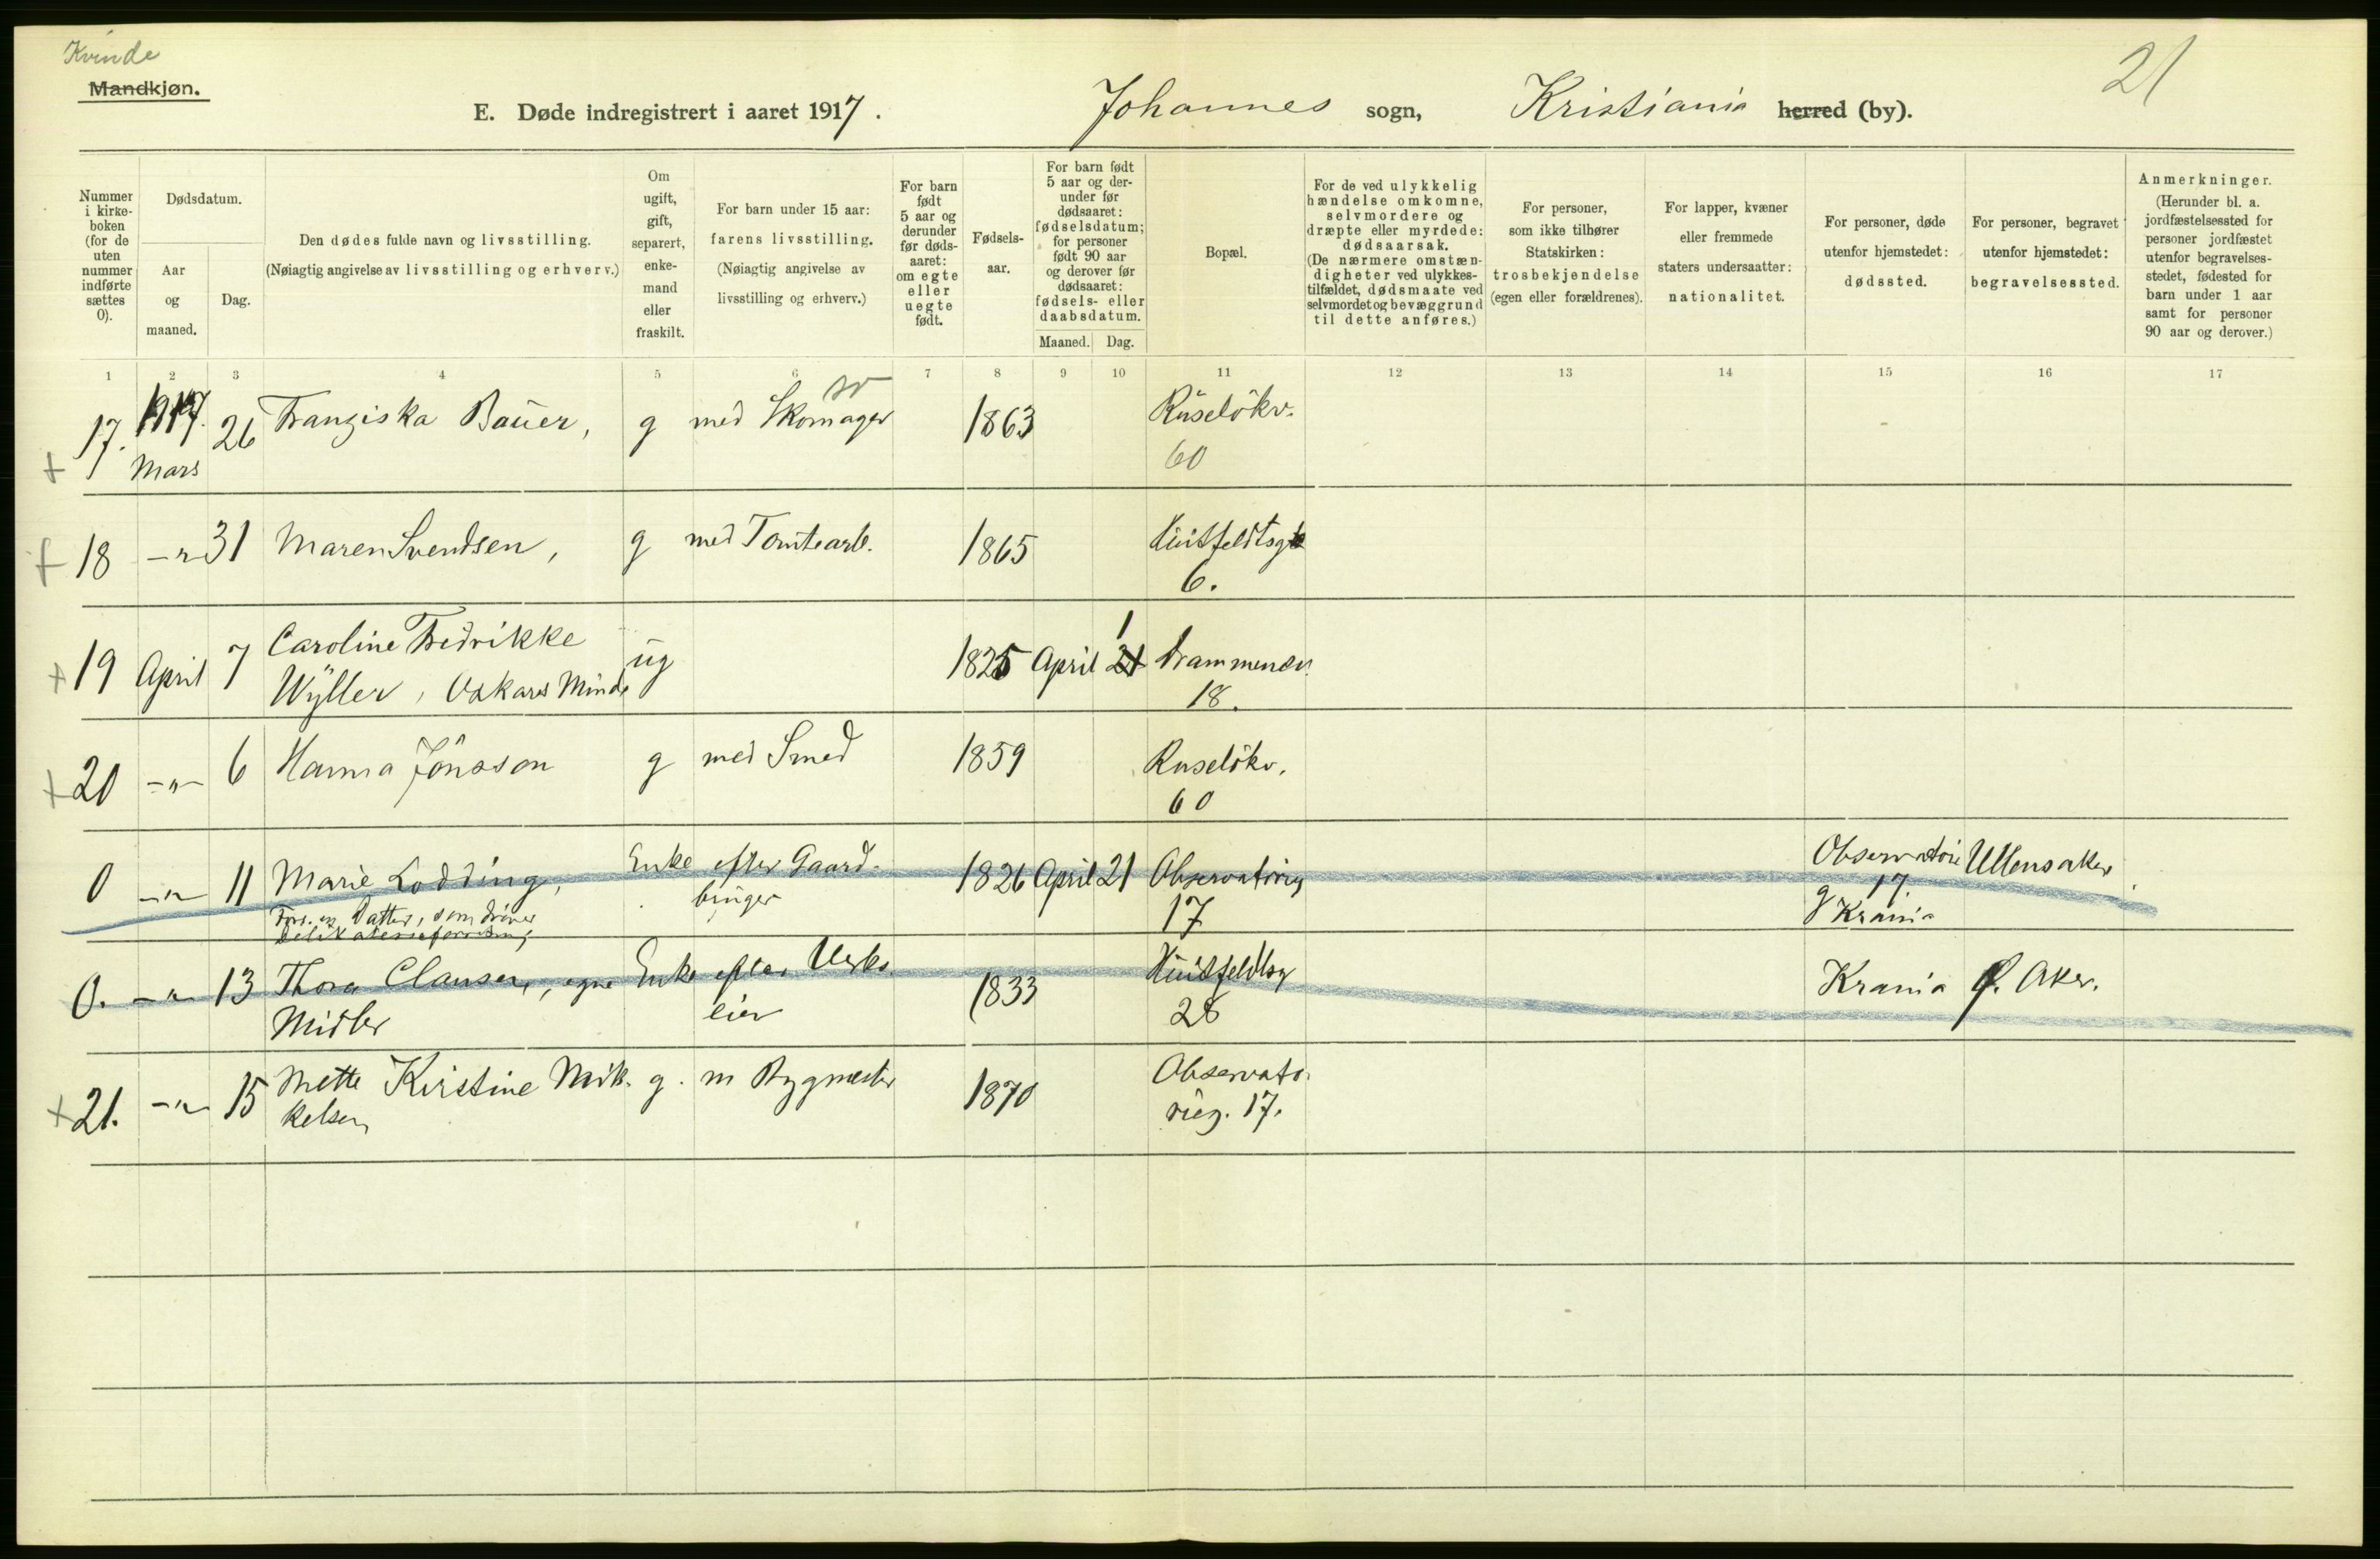 Kvinde
Mandkjøn.
21
E. Døde indregistrert i aaret 1917.
Johannes sogn, Kristiania herred (by).
Nummer i kirke-boken (for de uten nummer indførte sættes 0).
Dødsdatum.
Aar og maaned.
Dag.
Den dødes fulde navn og livsstilling.
(Nøiagtig angivelse av livsstilling og erhverv.)
Om ugift, gift, separert, enke-mand eller fraskilt.
For barn under 15 aar:
farens livsstilling.
(Nøiagtig angivelse av livsstilling og erhverv.)
For barn født 5 aar og derunder før døds-aaret: om egte eller uegte født.
Fødsels-aar.
For barn født 5 aar og der-under før dødsaaret: fødselsdatum; for personer født 90 aar og derover før dødsaaret: fødsels- eller daabsdatum.
Maaned. Dag.
Bopæl.
For de ved ulykkelig hændelse omkomne, selvmordere og dræpte eller myrdede: dødsaarsak. (De nærmere omstæn-digheter ved ulykkes-tilfældet, dødsmaate ved selvmordet og bevæggrund til dette anføres.)
For personer, som ikke tilhører Statskirken: trosbekjendelse (egen eller forældrenes).
For lapper, kvæner eller fremmede staters undersaatter: nationalitet.
For personer, døde utenfor hjemstedet: dødssted.
For personer, begravet utenfor hjemstedet: begravelsessted.
Anmerkninger.
(Herunder bl. a. jordfæstelsessted for personer jordfæstet utenfor begravelses-stedet, fødested for barn under 1 aar samt for personer 90 aar og derover.)
1 2 3 4 5 6 7 8 9 10 11 12 13 14 15 16 17
17. 1917. Mars 26 Franziska Bauer, g med Skomager 1863 Ruseløkv. 60
18 -"- 31 Maren Svendsen, g med Tomtearb. 1865 Huitfeldtsgt 6.
19 April 7 Caroline Fredrikke
Wyller, Oskars Minde ug 1825 April 1 21 Drammensv. 18.
20 -"- 6 Hanna Jönsson g med Smed 1859 Ruseløkv. 60
0 -"- 11 Marie Lodding, Enke efter Gaard-
bruger 1826 April 21 Observatorieg 17 Observatorie
g 17. Krania Ullensaker
Fors. av Datter, som driver
Delikatesseforretning
0. -"- 13 Thora Clausen, egne
Midler Enke efter Verks
eier 1833 Huitfeldtsg 28 Krania Ø. Aker.
21. -"- 15 Mette Kirstine Mik-
kelsen g. m Bygmester 1870 Observato-
rieg. 17.